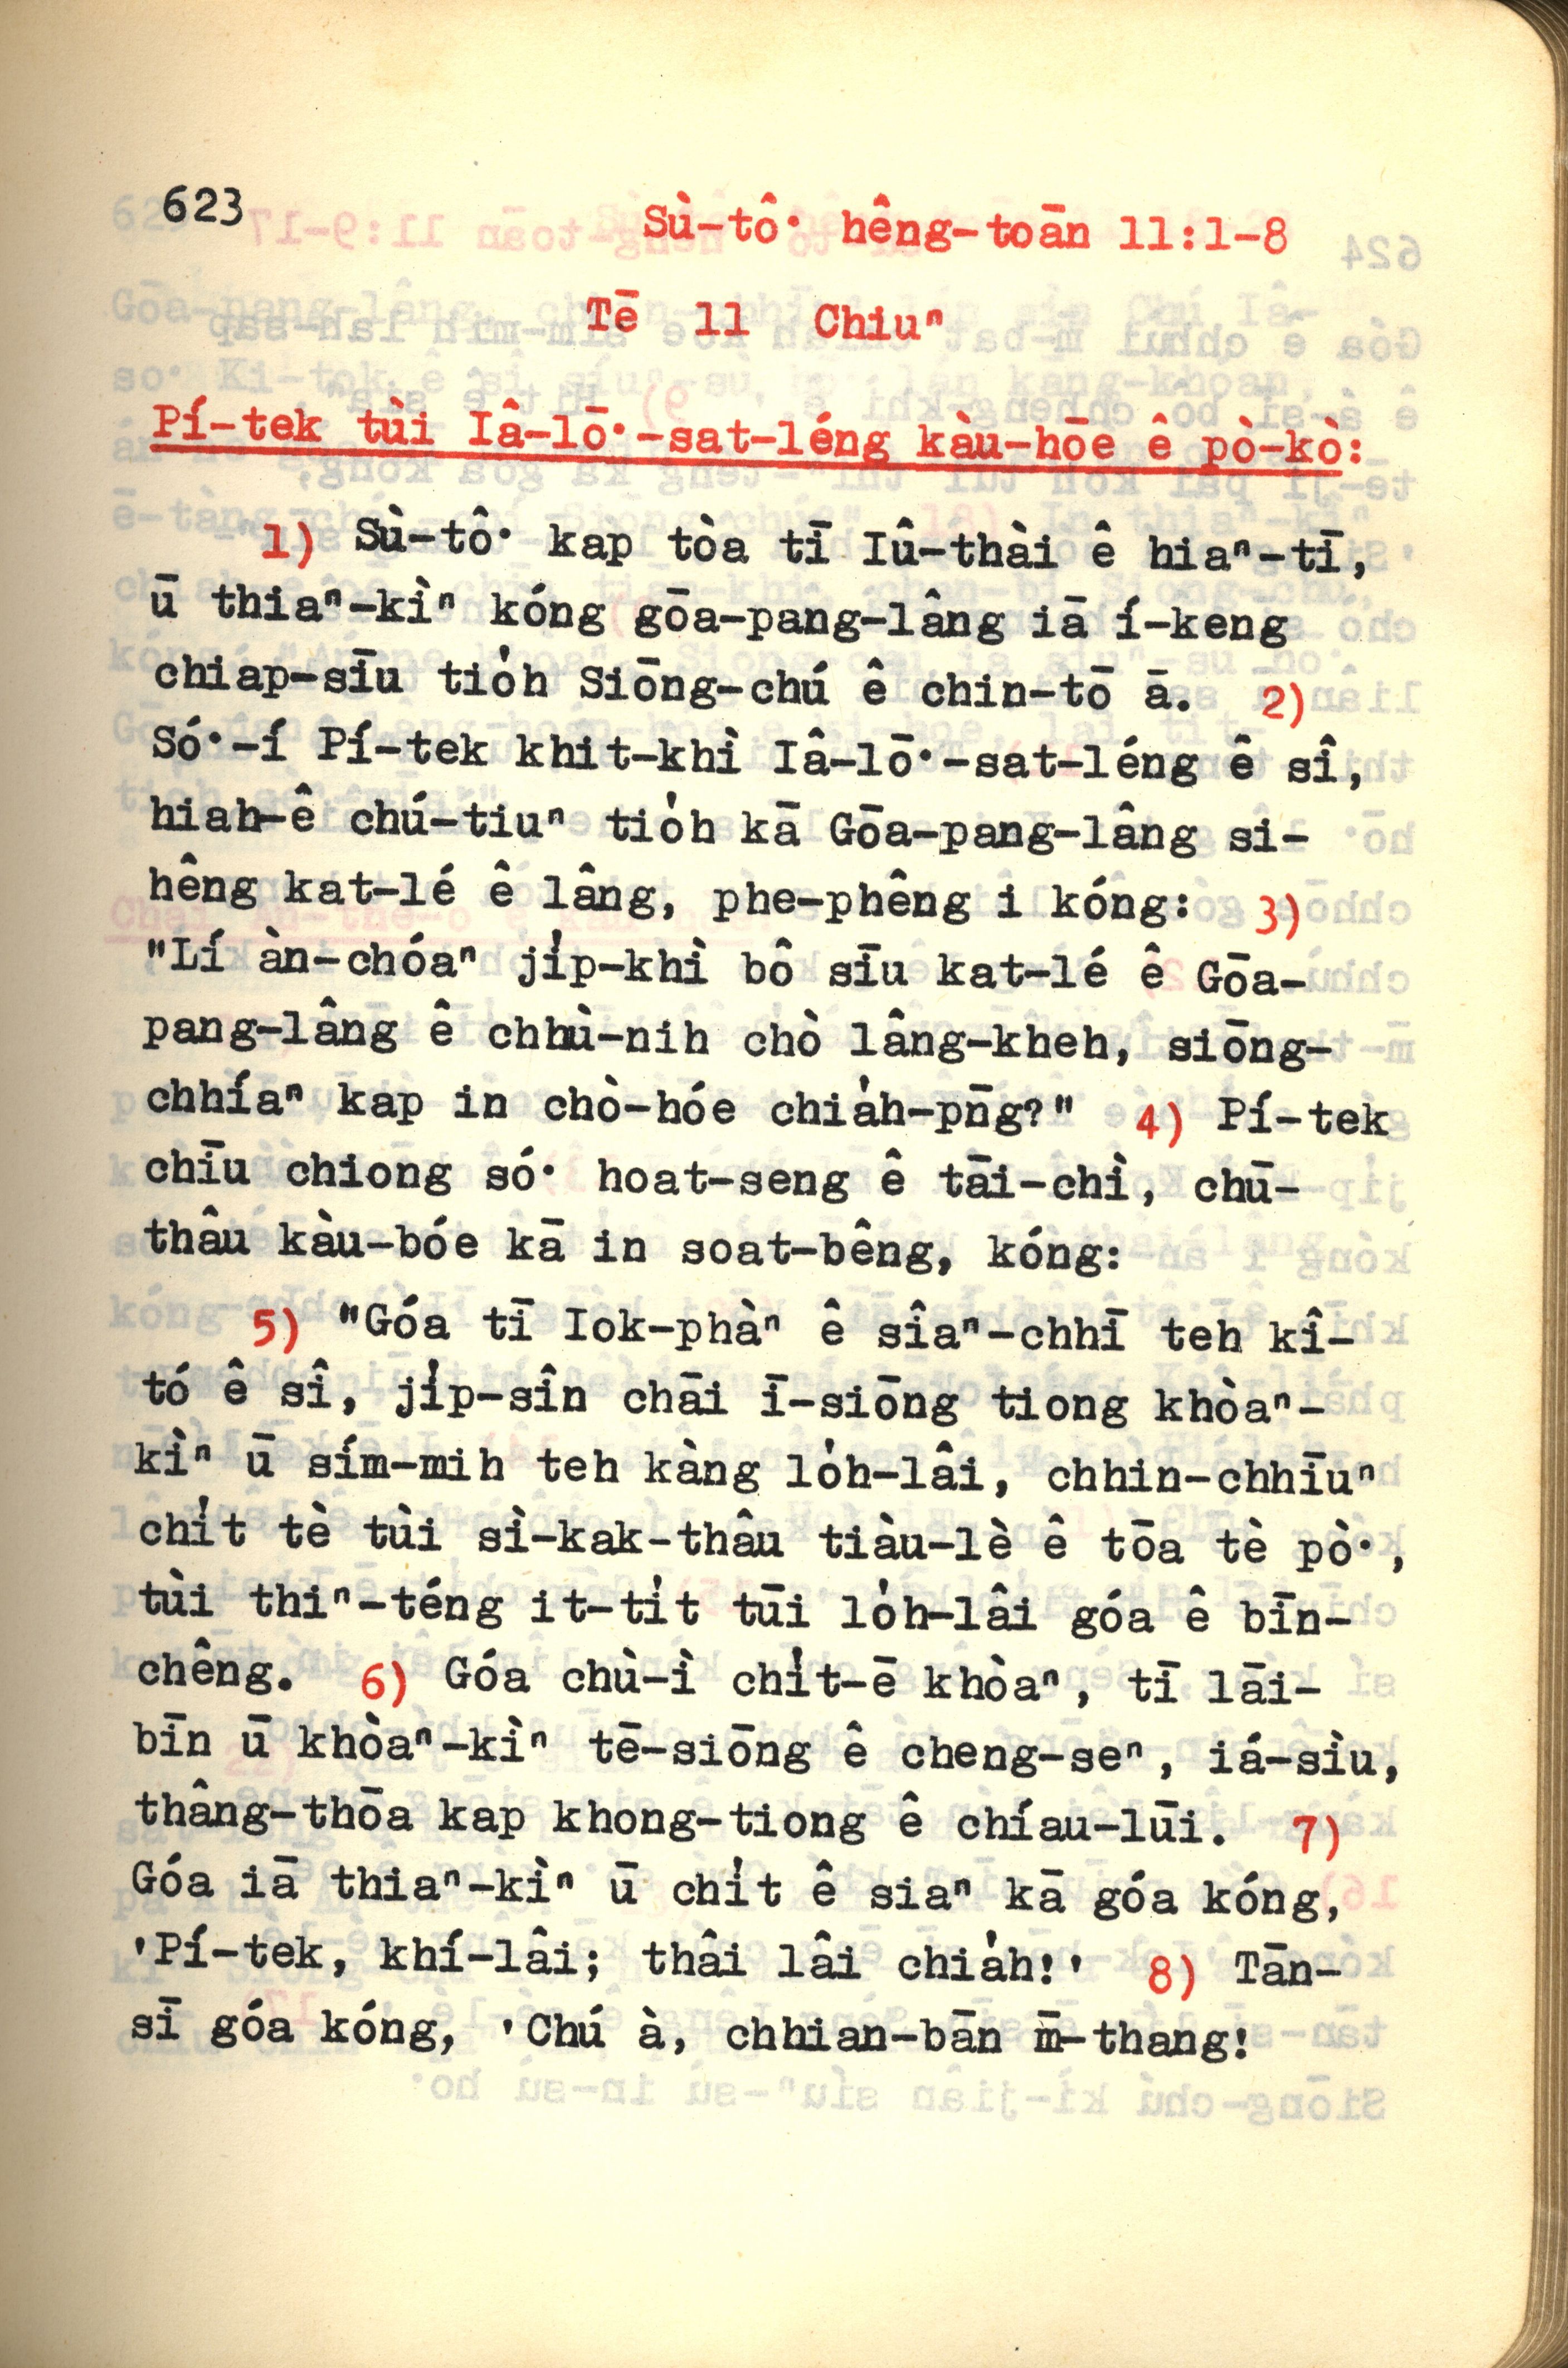 623
Sù-tô͘ hêng-toān 11:1-8
Tē 11 Chiuⁿ
Pí-tek tùi Iâ-lō͘-sat-léng kàu-hōe ê pò-kò:
1) Sù-tô͘ kap tòa tī Iû-thài ê hiaⁿ-tī,
ū thiaⁿ-kìⁿ kóng gōa-pang-lâng iā í-keng
chiap-sīu tio̍h Siōng-chú ê chin-tō ā. 2)
Só͘-í Pí-tek khit-khì Iâ-lō͘-sat-léng ê sî,
hiah-ê chú-tiuⁿ tio̍h kā Gōa-pang-lâng si-
hêng kat-lé ê lâng, phe-phêng i kóng: 3)
"Lí àn-chóaⁿ ji̍p-khì bô sīu kat-lé ê Gōa-
pang-lâng ê chhù-nih chò lâng-kheh, siōng-
chhíaⁿ kap in chò-hóe chia̍h-pn̄g?" 4) Pí-tek
chīu chiong só͘ hoat-seng ê tāi-chì, chū-
thâu kàu-bóe kā in soat-bêng, kóng:
5) "Góa tī Iok-phàⁿ ê sîaⁿ-chhī teh kî-
tó ê sî, ji̍p-sîn chāi ī-siōng tiong khòaⁿ-
kìⁿ ū sím-mih teh kàng lo̍h-lâi, chhin-chhīuⁿ
chi̍t tè tùi sì-kak-thâu tiàu-lè ê tōa tè pò͘,
tùi thiⁿ-téng it-ti̍t tūi lo̍h-lâi góa ê bīn-
chêng. 6) Góa chù-ì chi̍t-ē khòaⁿ, tī lāi-
bīn ū khòaⁿ-kìⁿ tē-siōng ê cheng-seⁿ, iá-sìu,
thâng-thōa kap khong-tiong ê chíau-lūi. 7)
Góa iā thiaⁿ-kìⁿ ū chi̍t ê siaⁿ kā góa kóng,
'Pí-tek, khí-lâi; thâi lâi chia̍h!' 8) Tān-
sī góa kóng, 'Chú à, chhian-bān m̄-thang!